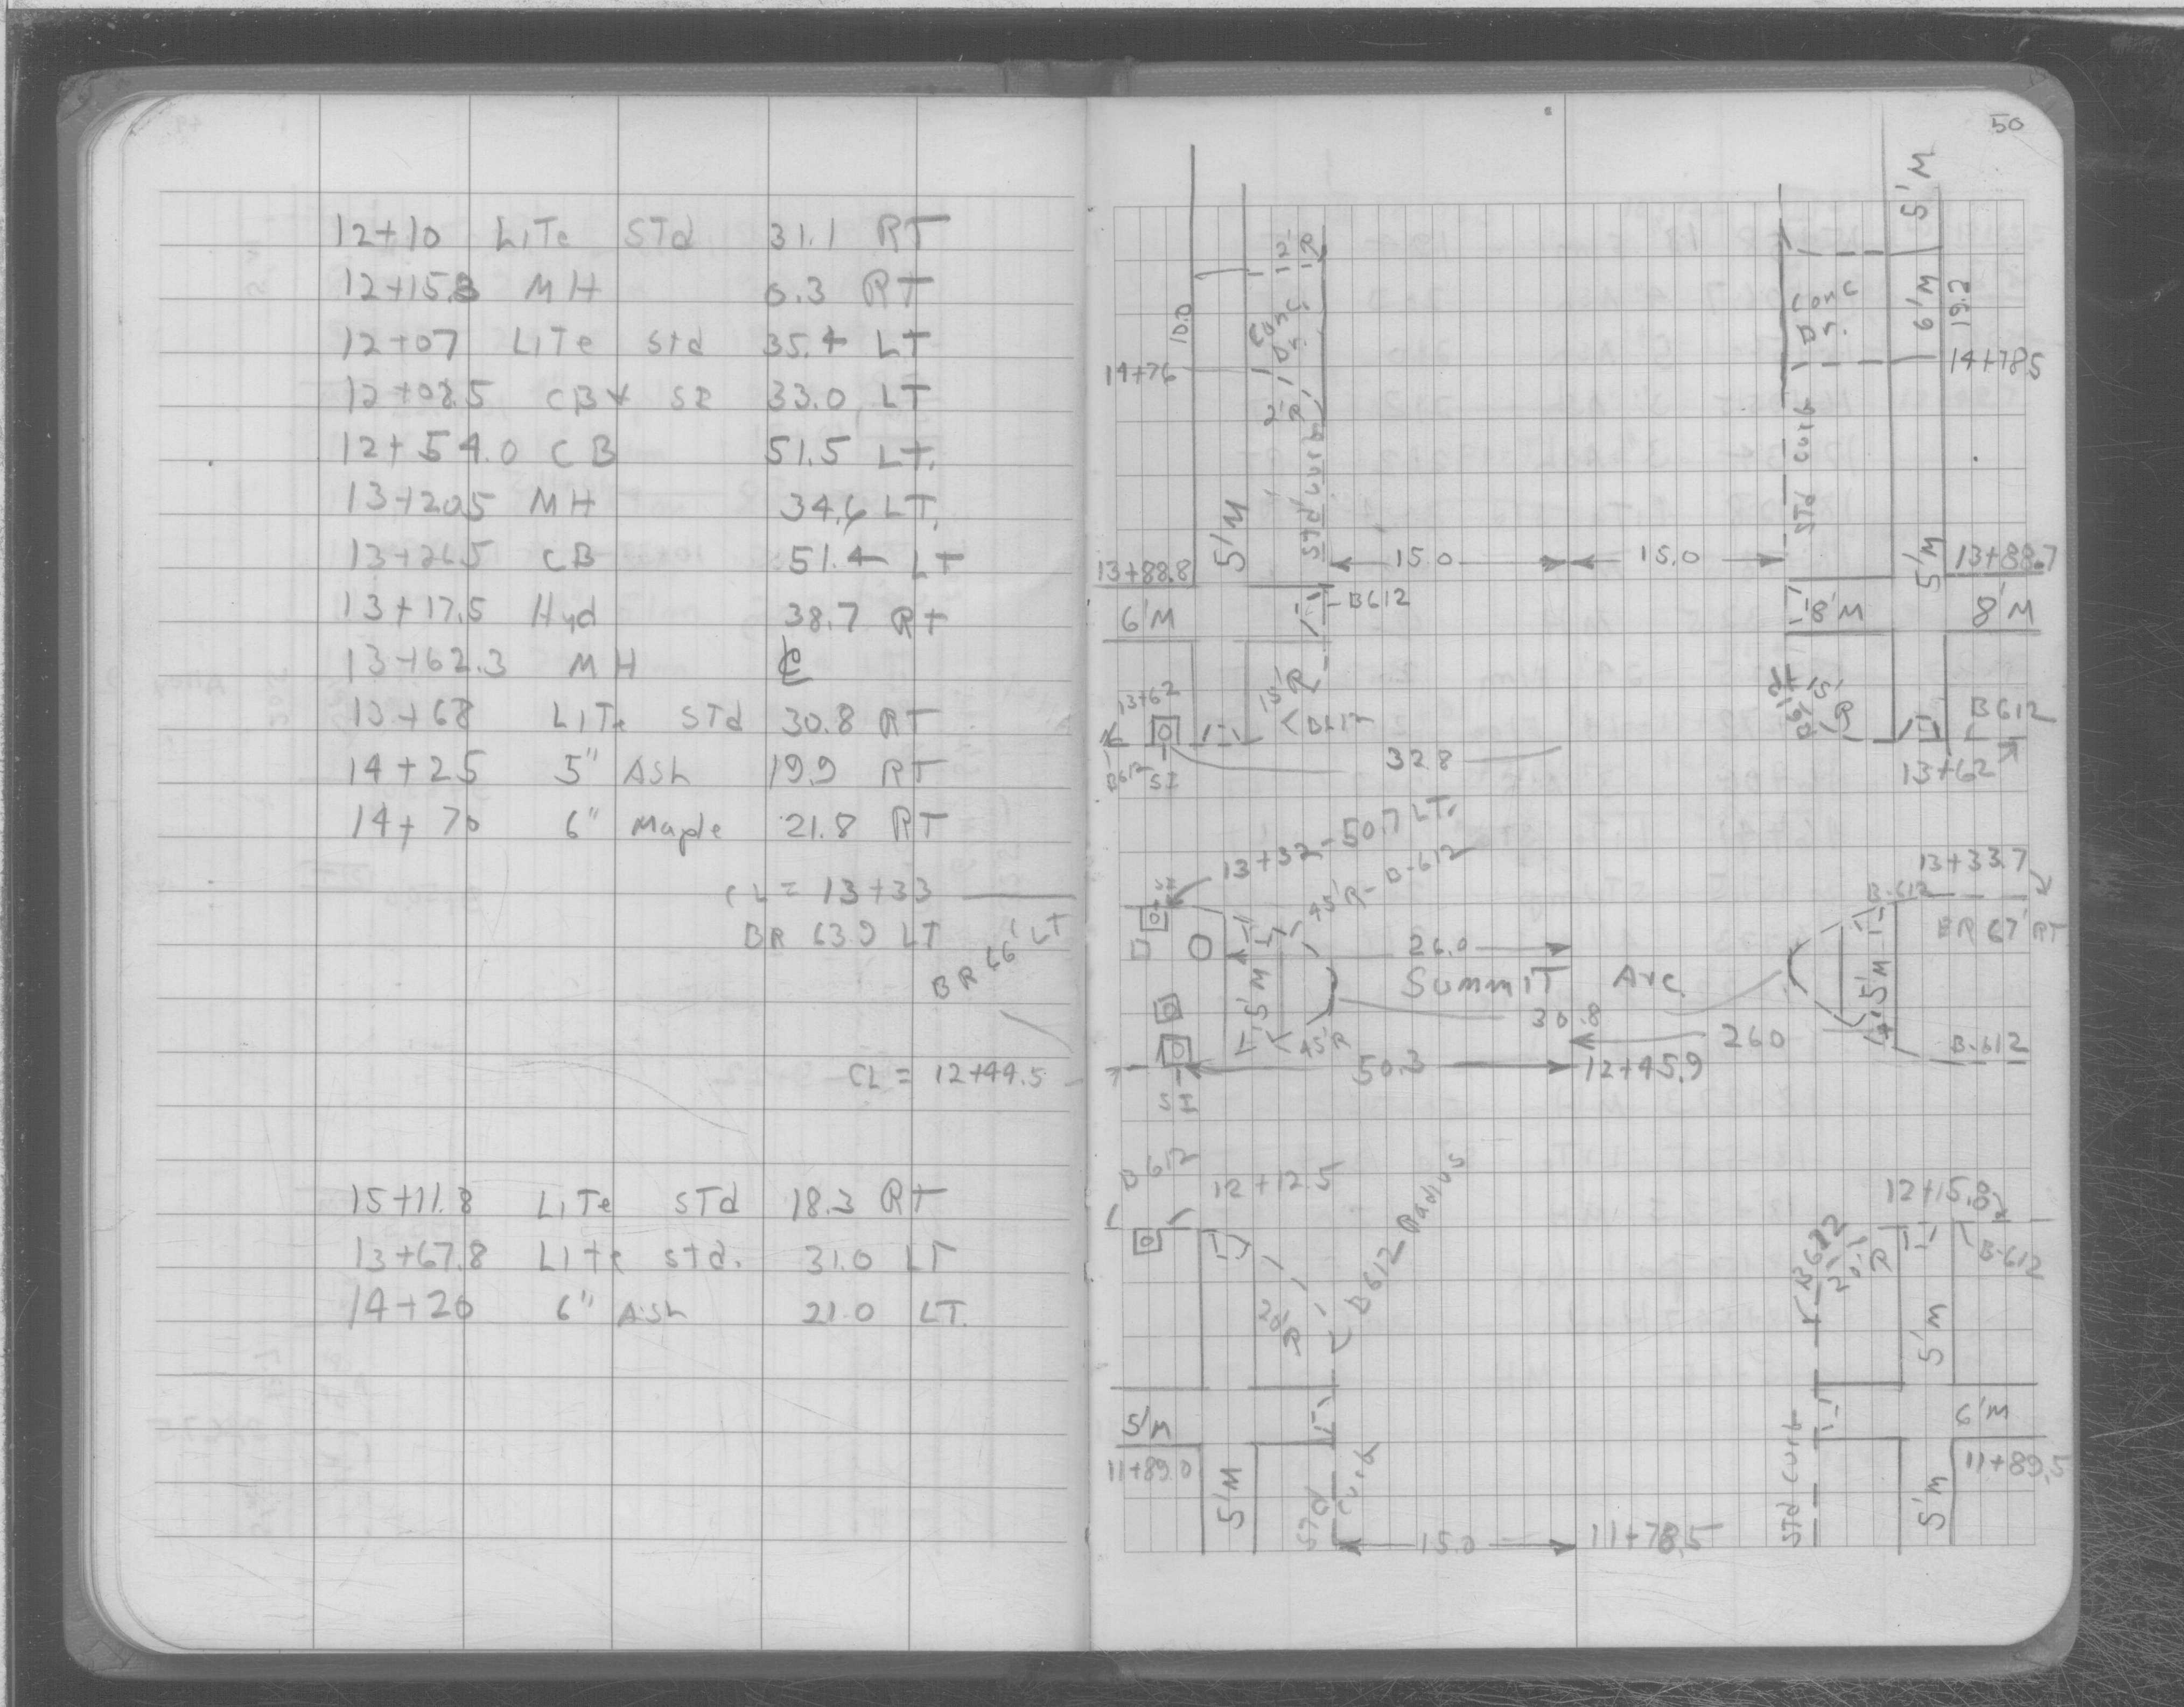 12+10 LiTe STd 31.1 RT
12+15.8 MH 0.3 RT
12+07 LiTe Std 35.4 LT
12+02.5 CB 33.0 LT
12+54.0 CB 51.5 LT.
13+20.5 MH 34.6 LT.
13+26.5 CB 51.4 LT
13+17.5 Hyd 38.7 RT
13+62.3 MH ℄
13+68 LiTe STd 30.8 RT
14+25 5" ASh 19.9 RT
14+70 6" Maple 21.8 RT
CL = 13+33
BR 63.9 LT
BR 66' LT
CL = 12+44.5
15+11.8 LiTe STd 18.3 RT
13+67.8 Lite std. 31.0 LT
14+20 6" ASh 21.0 LT.
50
5'M
2'R
10.0
Conc Dr.
Conc Dr.
6'M
19.2
14+76
14+78.5
2'R
Std curb
STd curb
5'M
5'M
15.0 15.0
13+88.8
13+88.7
6'M
B612
8'M
8'M
15'R
B612
15'R
B612
13+62
B612
B612 SI
32.8
13+62
13+32-50.7 LT.
45'R-B-612
13+33.7
B-612
BR 67' RT
26.0
5'M
Summit Ave.
5'M
30.8
45'R
26.0
50.3
12+45.9
B-612
SI
B612
12+12.5
B612 Radius
12+15.8
B612
20'R
B-612
20'R
5'M
5'M
6'M
11+89.0
11+89.5
5'M
STd Curb
STd Curb
5'M
15.0
11+78.5